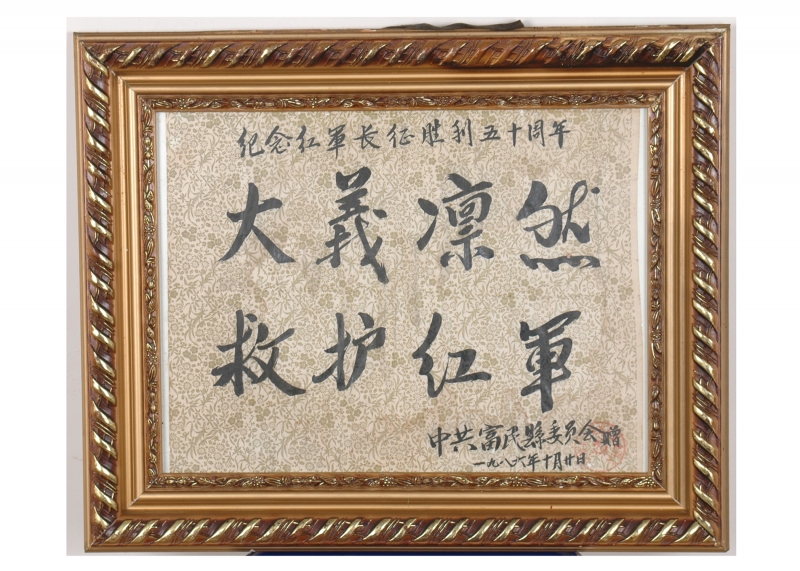 纪念红軍長征胜利五十周年
大義凛然
救护红軍
中共富民縣委员会赠
一九八六年十月廿日